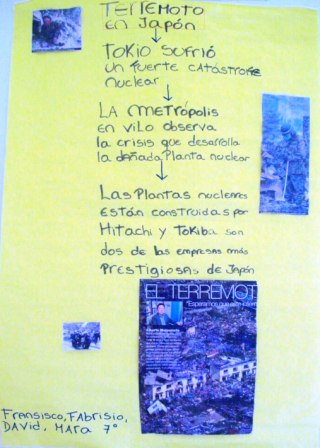 TERREMOTO
EN JAPÓN
TOKIO SUFRIÓ
UN FUERTE CATÁSTROFE
nuclear
LA METRÓPOLIS
EN VILO OBSERVA
la crisis que desarrolla
la dañada Planta nuclear
LAS Plantas nucleares
ESTÁN CONSTRUIDAS POR
HITACHI Y TOKIBA SON
DOS DE LAS EMPRESAS MÁS
PRESTIGIOSAS DE JAPÓN
EL TERREMOT
"Esperamos que
Fransisco, FABRISIO,
DAVID, MARA 7º